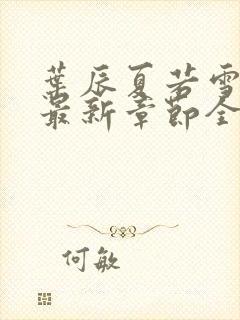 葉辰夏若雪
最新章節全
何敏